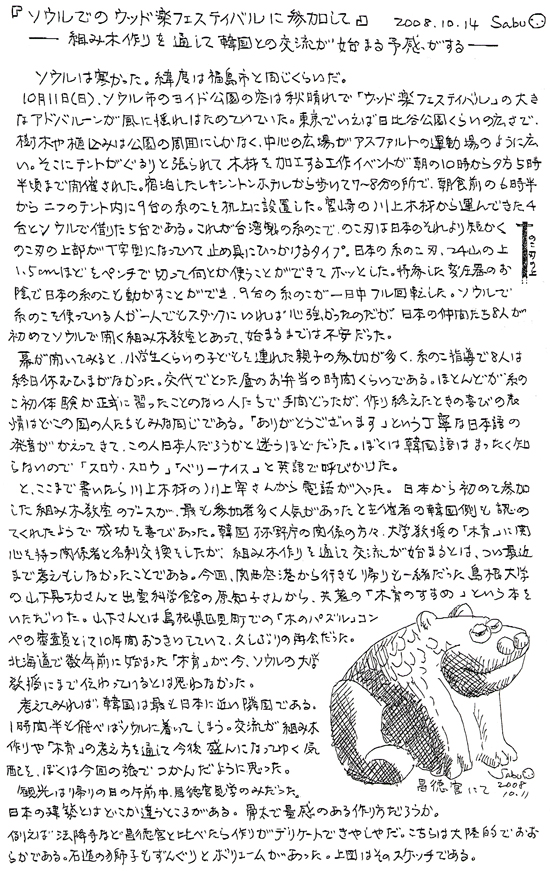 『ソウルでのウッド楽フェスティバルに参加して』 2008.10.14 Sabu
― 組み木作りを通して韓国との交流が始まる予感がする ―
ソウルは寒かった。緯度は福島市と同じくらいだ。
10月11日(日)、ソウル市のヨイド公園の空は秋晴れで「ウッド楽フェスティバル」の大き
なアドバルーンが風に揺れはためいていた。東京でいえば日比谷公園くらいの広さで、
樹木や植込みは公園の周囲にしかなく、中心の広場がアスファルトの運動場のように広
い。そこにテントがぐるりと張られて木材を加工する工作イベントが朝の10時から夕方5時
半頃まで開催された。宿泊したレキシントンホテルから歩いて7〜8分の所で、朝食前の6時半
から二つのテント内に9台の糸のこを机上に設置した。宮崎の川上木材から運んできた4
台とソウルで借りた5台である。これが台湾製の糸のこで、のこ刃は日本のそれより短かく
のこ刃の上部がT字型になっていて止め具にひっかけるタイプ。日本の糸のこ刃、24山の上
1.5cmほどをペンチで切って何とか使うことができてホッとした。持参した変圧器のお
陰で日本の糸のこも動かすことができ、9台の糸のこが一日中フル回転した。ソウルで
糸のこを使っている人が一人でもスタッフにいれば心強かったのだが、日本の仲間たち8人が
初めてソウルで開く組み木教室とあって、始まるまでは不安だった。
のこの刃
幕が開いてみると、小学生くらいの子どもを連れた親子の参加が多く、糸のこ指導で8人は
終日休むひまがなかった。交代でとった昼のお弁当の時間くらいである。ほとんどが糸の
こ初体験か正式に習ったことのない人たちで手間どったが、作り終えたときの喜びの表
情はどこの国の人たちもみな同じである。「ありがとうございます」という丁寧な日本語の
発音がかえってきて、この人日本人だろうかと迷うほどだった。ぼくは韓国語はまったく知
らないので「スロウ・スロウ」「ベリーナイス」と英語で呼びかけた。
と、ここまで書いたら川上木材の川上宰さんから電話が入った。日本から初めて参加
した組み木教室のブースが、最も参加者多く人気があったと主催者の韓国側も認め
てくれたようで成功を喜びあった。韓国林野庁の関係の方々、大学教授の「木育」に関
心を持つ関係者と名刺交換をしたが、組み木作りを通して交流が始まるとは、つい最近
まで考えもしなかったことである。今回、関西空港から行きも帰りも一緒だった島根大学
の山下晃功さんと出雲科学館の原知子さんから、共著の「木育のすすめ」という本を
いただいた。山下さんとは島根県匹見町での「木のパズル」コン
ペの審査員として10年間おつきいしていて、久しぶりの再会だった。
北海道で数年前に始まった「木育」が、今、ソウルの大学
教授にまで伝わっているとは思わなかった。
考えてみれば、韓国は最も日本に近い隣国である。
1時間半も飛べばソウルに着いてしまう。交流が組み木
作りや「木育」の考え方を通して今後盛んになってゆく気
配を、ぼくは今回の旅でつかんだように思った。
観光は帰りの日の午前中、昌徳宮見学のみだった。
日本の建築とはどこか違うところがある。骨太で量感のある作り方だろうか。
例えば法隆寺など昌徳宮と比べたら作りがデリケートできゃしゃだ。こちらは大陸的でおお
らかである。石造の獅子もずんぐりとボリュームがあった。上図はそのスケッチである。
昌徳宮にて
Sabu
2008
10.11